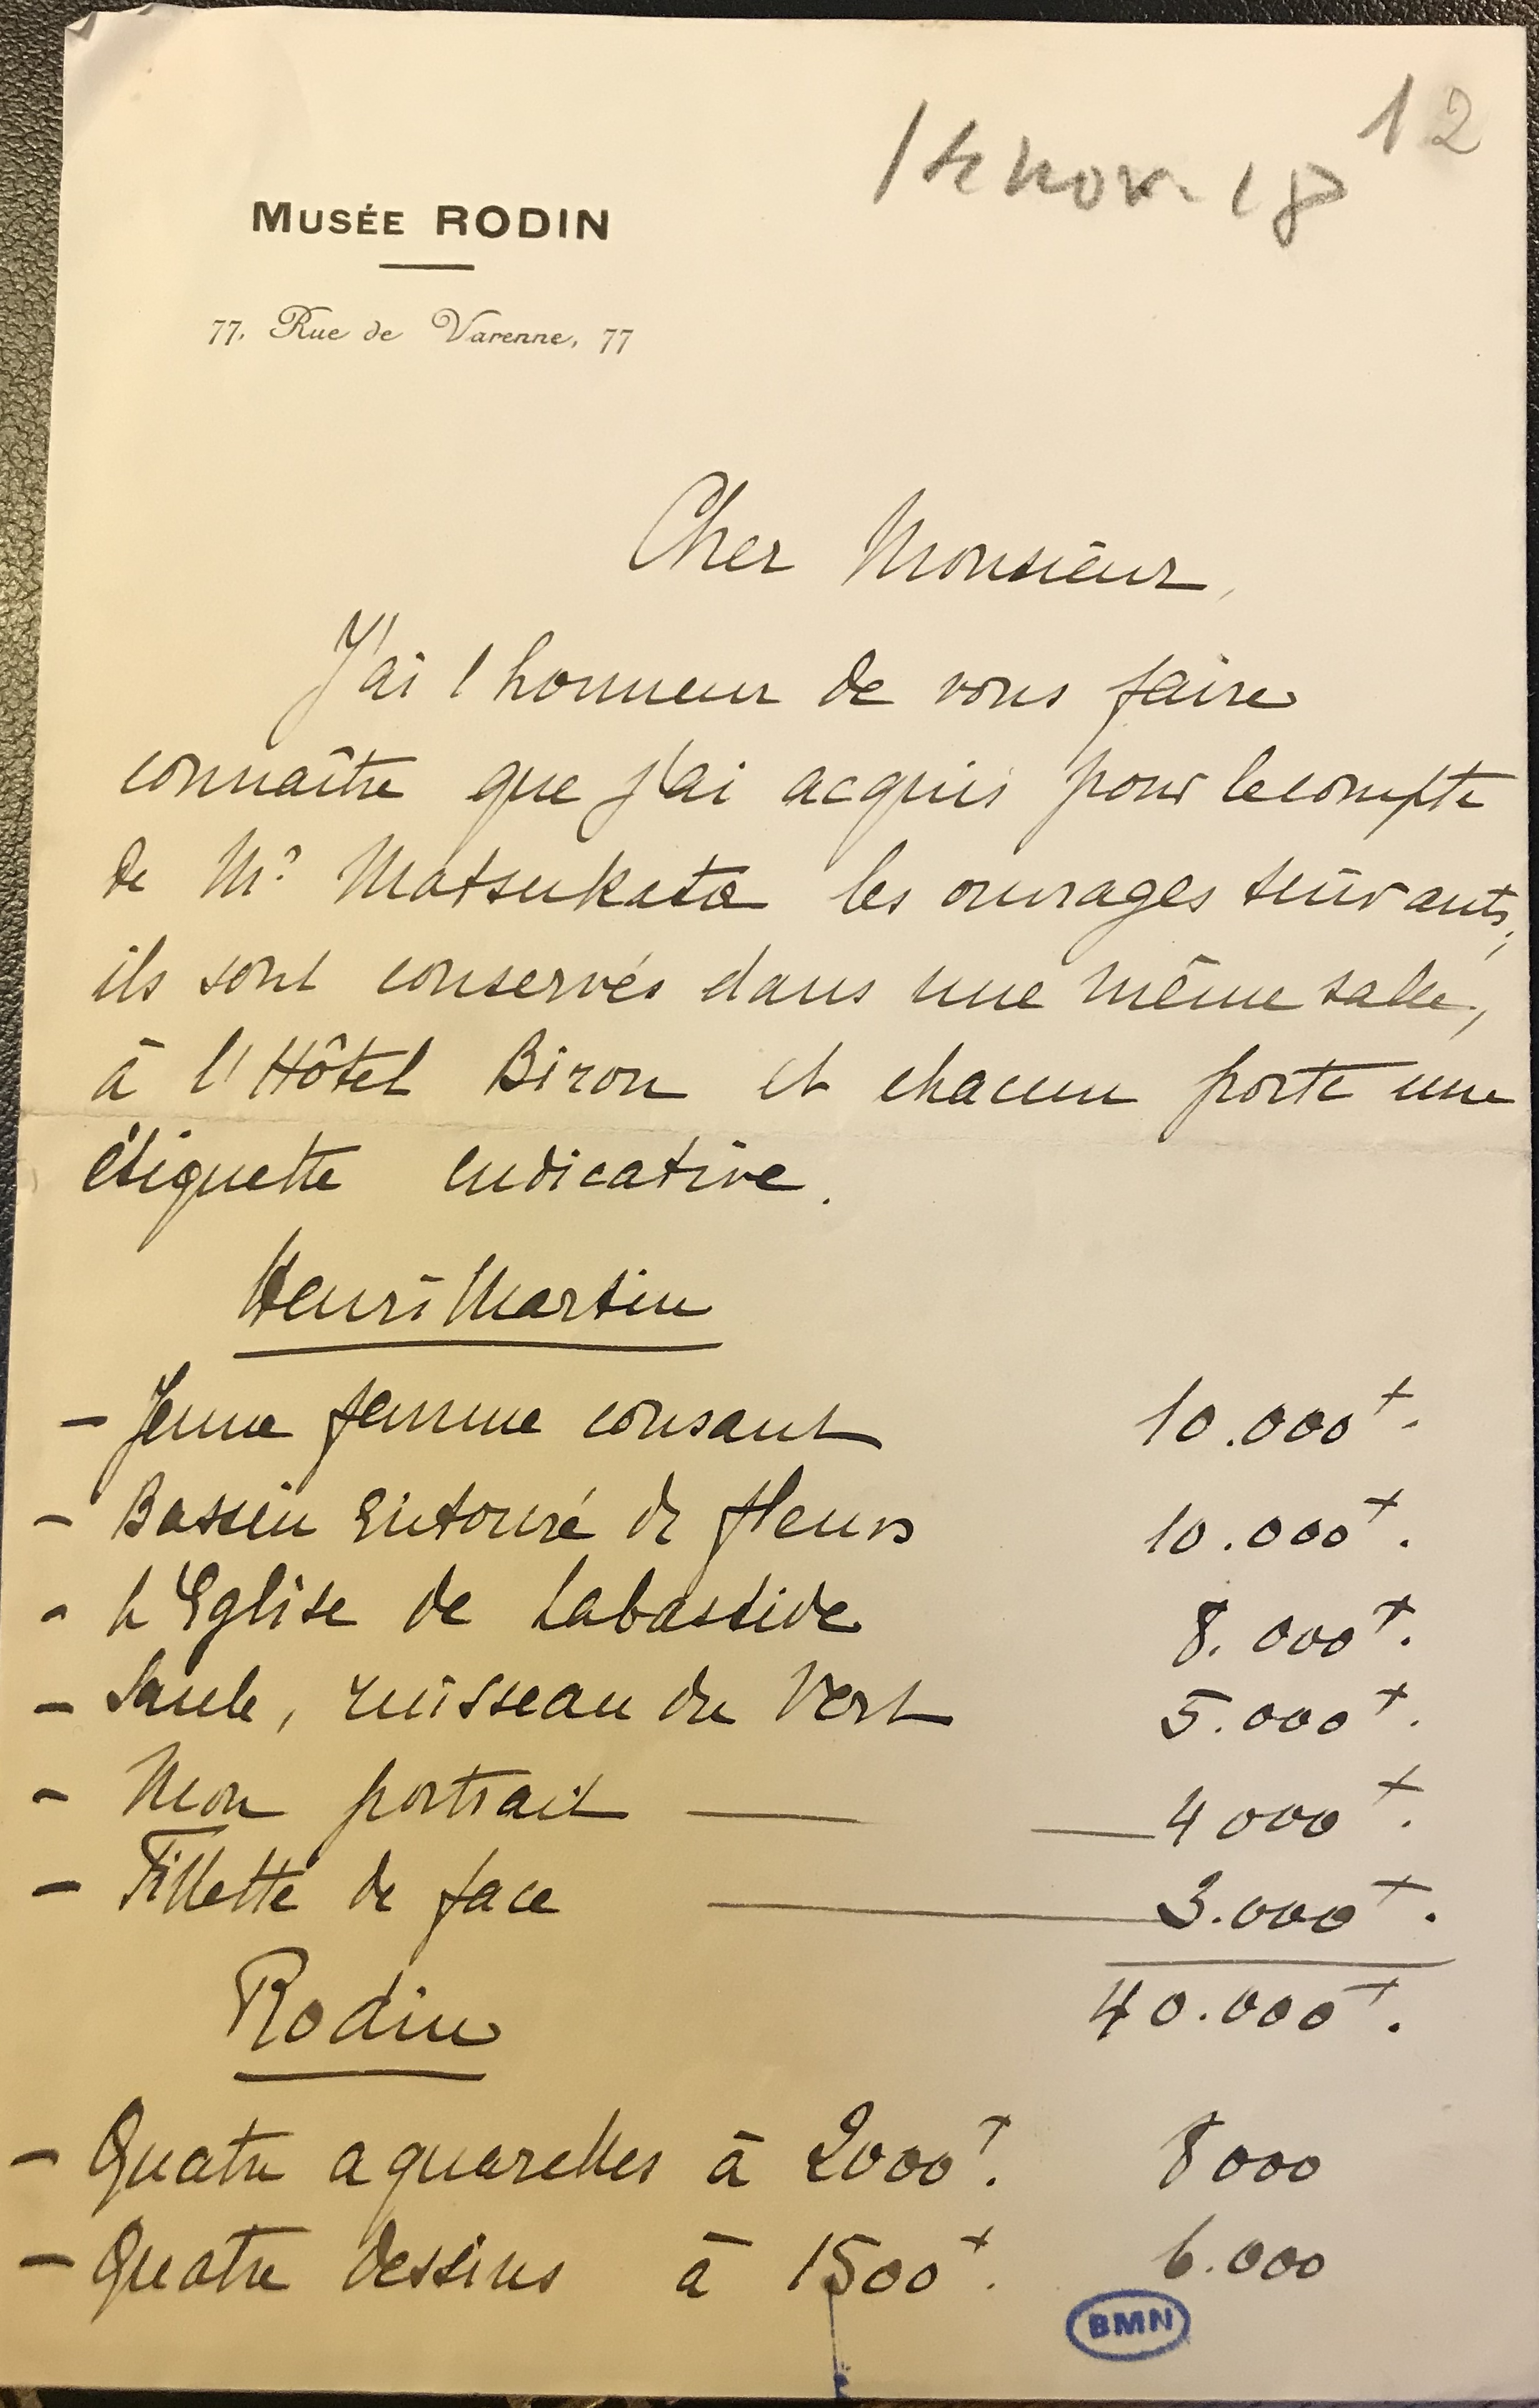 12
14 nov. 18
MUSÉE RODIN
77, Rue de Varenne, 77
Cher Monsieur,
J'ai l'honneur de vous faire
connaître que j'ai acquis pour le compte
de Mr Matsukata les ouvrages suivants,
ils sont conservés dans une même salle,
à l'Hôtel Biron et chacun porte une
étiquette indicative.
Henri Martin
- Jeune femme cousant 10.000f.
- Bassin entouré de fleurs 10.000f.
- L'Eglise de Labastide 8.000f.
- Saule, ruisseau du Vert 5.000f.
- Mon portrait — — 4000f.
- Fillette de face — 3.000f.
40.000f.
Rodin
- Quatre aquarelles à 2000f. 8000
- Quatre dessins à 1500f. 6.000
BMN